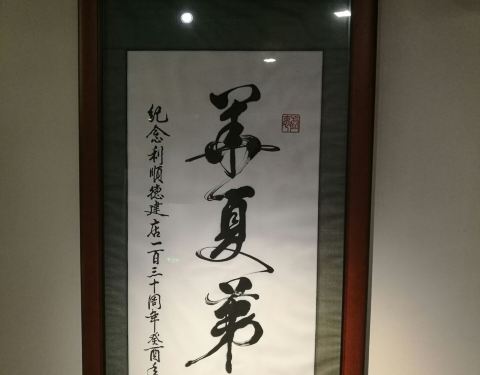 華夏第
紀念利順德建店一百三十周年癸酉